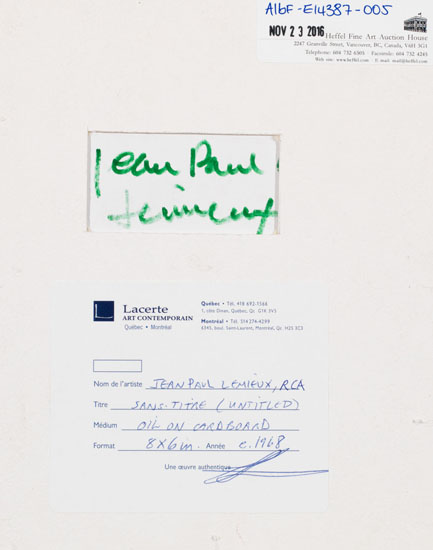 A16F-E14387-005
NOV 23 2016
Heffel Fine Art Auction House
2247 Granville Street, Vancouver, BC, Canada, V6H 3G1
Telephone: 604 732 6505 Facsimile: 604 732 4245
Web site: www.heffel.com E mail: mail@heffel.com
Jean Paul
Lemieux
Lacerte
ART CONTEMPORAIN
Québec • Montréal
Québec • Tél. 418 692-1566
1, côte Dinan, Québec, Qc G1K 3V5
Montréal • Tél. 514 274-4299
6345, boul. Saint-Laurent, Montréal, Qc H2S 3C3
Nom de l'artiste JEAN PAUL LEMIEUX, RCA
Titre SANS-TITRE (UNTITLED)
Médium OIL ON CARDBOARD
Format 8X6 in. Année c. 1968
Une œuvre authentique